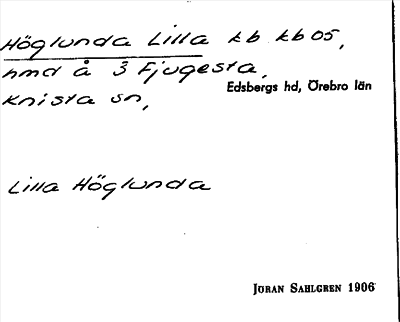 Höglunda Lilla kb kb 05,
hmd å 3 Fjugesta,
Knista sn,
Edsbergs hd, Örebro län
Lilla Höglunda
JÖRAN SAHLGREN 1906